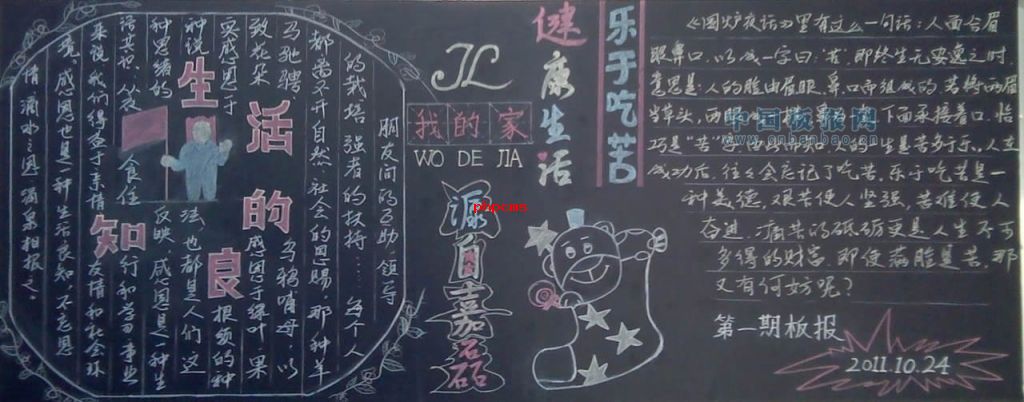 生活的良知
朋友间的互助,领导
的栽培,强者的扶持……每个人
都离不开自然、社会的恩赐。那种羊
乌鸦哺母,以
致花朵感恩于绿叶,果
实感恩于根须的种
种说法,也都是人们这
种思绪的反映。感恩是一种生
食住行和学习事业
来说,我们得益于亲情、友情和社会环
境。感恩也是一种生活良知,不忘恩
情,滴水之恩,涌泉相报之。
JL
我的家
WO DE JIA
源自嘉磊
phpcms
健康生活
乐于吃苦
《围炉夜话》里有这么一句话:人面合眉
眼鼻口,以成一字曰:苦,即终生无安逸之时,
意思是:人的脸由眉眼、鼻口而组成的,若将两眉
当草头,两眼
下面承接着口,恰
巧是"苦"
的一生是苦多于乐。人在
成功后,往々会忘记了吃苦。乐于吃苦是一
种美德,艰苦使人坚强,苦难使人
奋进,痛苦的砥砺更是人生不可
多得的财富,即使满脸是苦,那
又有何妨呢?
中国板报网
www.cnbanbao.cn
第一期板报
2011.10.24